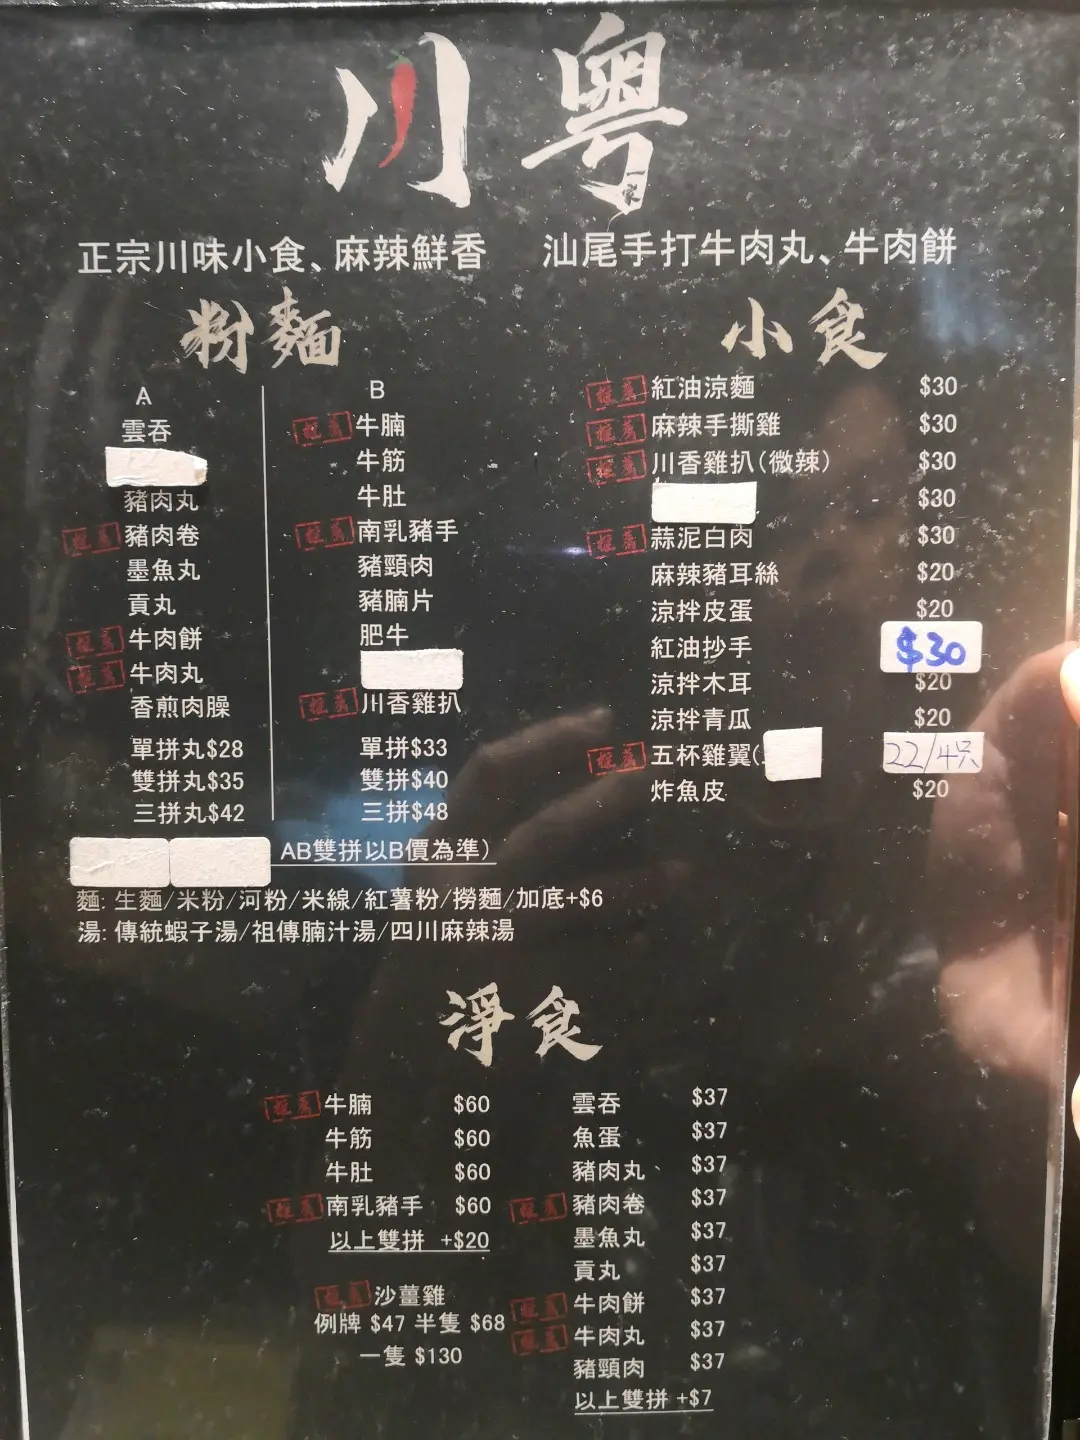 川粵
一家
正宗川味小食、麻辣鮮香
汕尾手打牛肉丸、牛肉餅
粉麵
A
雲吞
豬肉丸
推薦 豬肉卷
墨魚丸
貢丸
推薦 牛肉餅
推薦 牛肉丸
香煎肉臊
單拼丸$28
雙拼丸$35
三拼丸$42
B
推薦 牛腩
牛筋
牛肚
推薦 南乳豬手
豬頸肉
豬腩片
肥牛
推薦 川香雞扒
單拼$33
雙拼$40
三拼$48
AB雙拼以B價為準)
麵: 生麵/米粉/河粉/米線/紅薯粉/撈麵/加底+$6
湯: 傳統蝦子湯/祖傳腩汁湯/四川麻辣湯
小食
推薦 紅油涼麵 $30
推薦 麻辣手撕雞 $30
推薦 川香雞扒(微辣) $30
$30
推薦 蒜泥白肉 $30
麻辣豬耳絲 $20
涼拌皮蛋 $20
紅油抄手 $30
涼拌木耳 $20
涼拌青瓜 $20
推薦 五杯雞翼( 22/4只
炸魚皮 $20
淨食
推薦 牛腩 $60
牛筋 $60
牛肚 $60
推薦 南乳豬手 $60
以上雙拼 +$20
推薦 沙薑雞
例牌 $47 半隻 $68
一隻 $130
雲吞 $37
魚蛋 $37
豬肉丸、 $37
推薦 豬肉卷 $37
墨魚丸 $37
貢丸 $37
推薦 牛肉餅 $37
推薦 牛肉丸 $37
豬頸肉 $37
以上雙拼 +$7